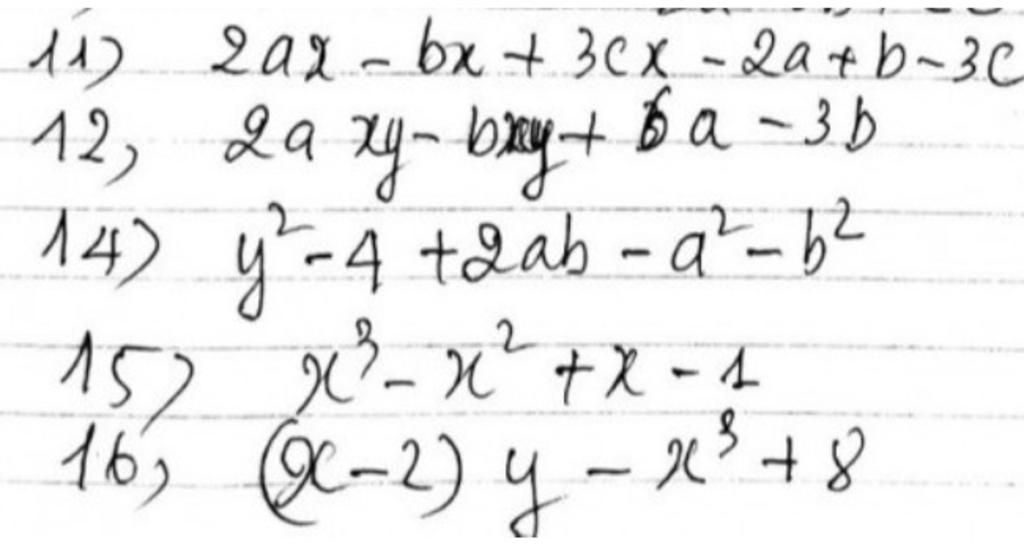 11) 2ax - bx + 3cx - 2a + b - 3c
12, 2a xy - bxy + 6a - 3b
14) y² - 4 + 2ab - a² - b²
15) x³ - x² + x - 1
16, (x - 2) y - x³ + 8